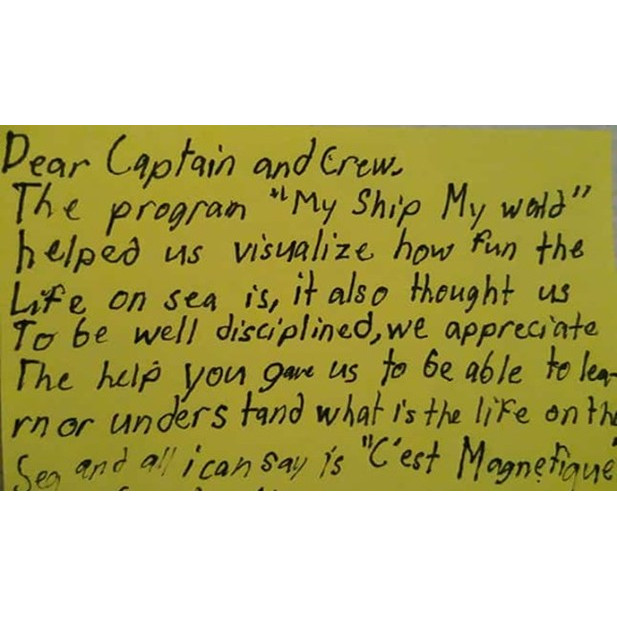 Dear Captain and Crew.
The program "My Ship My world"
helped us visualize how fun the
Life on sea is, it also thought us
To be well disciplined, we appreciate
The help you gave us to be able to lea
rn or understand what is the life on th
Sea and all i can say is "C'est Magnefique"